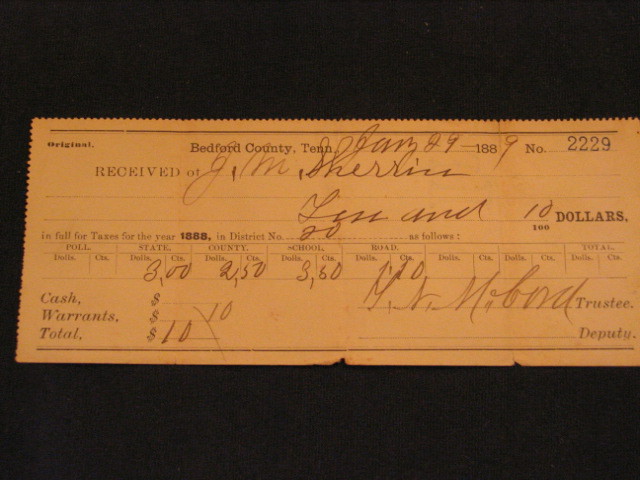 Original. Bedford County, Tenn. Jany 29 1889 No. 2229
RECEIVED of J. M. Sherrin
Ten and 10/100 DOLLARS,
in full for Taxes for the year 1888, in District No. 20 as follows:
POLL. STATE. COUNTY. SCHOOL. ROAD. TOTAL.
Dolls. Cts. Dolls. Cts. Dolls. Cts. Dolls. Cts. Dolls. Cts. Dolls. Cts. Dolls. Cts. Dolls. Cts.
3,00 2,50 3,50 1,10
Cash, $
Warrants, $ 10 Trustee.
Total, $ 10 Deputy.